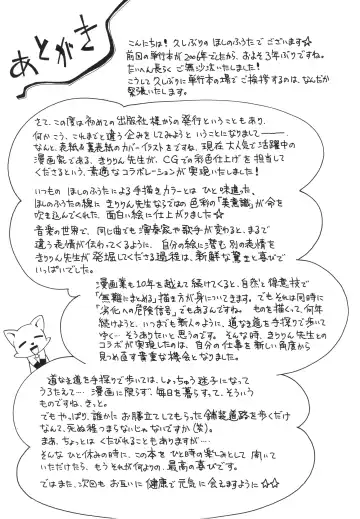 あとがき
こんにちは！久しぶりのほしのふうたでございます☆
前回の単行本が2006年でしたから、およそ3年ぶりですね。
たいへん長らくご無沙汰いたしました！
こうして久しぶりに単行本の場でご挨拶するのは、なんだか
緊張いたします。
さて、この度は初めての出版社様からの発行ということもあり、
何かこう、これまでと違う企みをしてみようということになりまして―――。
なんと、表紙&裏表紙のカバーイラストをですね、現在大人気で活躍中の
漫画家である、きりりん先生が、CGでの彩色仕上げを担当して
くださるという、素適なコラボレーションが実現いたしました！
いつものほしのふうたによる手描きカラーとはひと味違った、
ほしのふうたの線にきりりん先生ならではの色彩の「美意識」が命を
吹き込んでくれた、面白い絵に仕上がりました☆
音楽の世界で、同じ曲でも演奏家や歌手が変わると、まるで
違う表情が伝わってくるように、自分の絵に潜む別の表情を
きりりん先生が発掘してくださる過程は、新鮮な驚きと喜びで
いっぱいでした。
漫画業も10年を越えて続けてくると、自然と得意技で
「無難にまとめる」描き方が身についてきます。でもそれは同時に
「劣化への危険信号」でもあるんですね。ものを描くって、何年
続けようと、いつまでも新人のように、道なき道を手探りで歩いて
ゆく…そうありたいと思うのです。そんな時、きりりん先生との
コラボが実現したのは、自分の仕事を新しい角度から
見つめ直す貴重な機会となりました。
道なき道を手探りで歩いては、しょっちゅう迷子になって
うろたえて……漫画に限らず、毎日を暮らすって、そういう
ものですね、きっと。
でもやっぱり、誰かにお膳立てしてもらった舗装道路を歩くだけ
なんて、死ぬ程つまらないじゃないですか(笑)。
まあ、ちょっとはくたびれることもありますが…
そんなひと休みの時に、この本をひと時の楽しみとして開いて
いただけたら、もうそれが何よりの、最高の喜びです。
ではまた、次回もお互いに健康で元気に会えますように☆☆